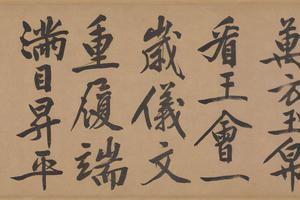 萬衣玉帛
看王會一
歲儀文
重履端
滿目昇平